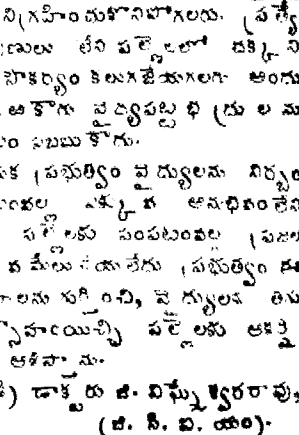 నిగ్రహించుకొనిపోగలరు. ప్రత్యే
ణులు లేని పల్లెలలో దక్కని
సౌకర్యం కలుగజేయగలగు అందు
ఱకొగు వైద్యపట్ట భద్రుల ను
ం సబబు కాదు.
క ప్రభుత్వం వైద్యులను నిర్బం
ంపల్ల ఎక్కువ అనుభవం లేని
పల్లెలకు పంపటంవల్ల ప్రజల
వ మేలు చేయ లేదు ప్రభుత్వం ఈ
లను గుర్తించి, వైద్యులవ తగు
త్సాహయిచ్చి పల్లెలకు ఆకర్షి
ఆశిస్తాను.
డాక్టరు జి. విఘ్నేశ్వరరావు,
(జి. సి. ఐ. యం).